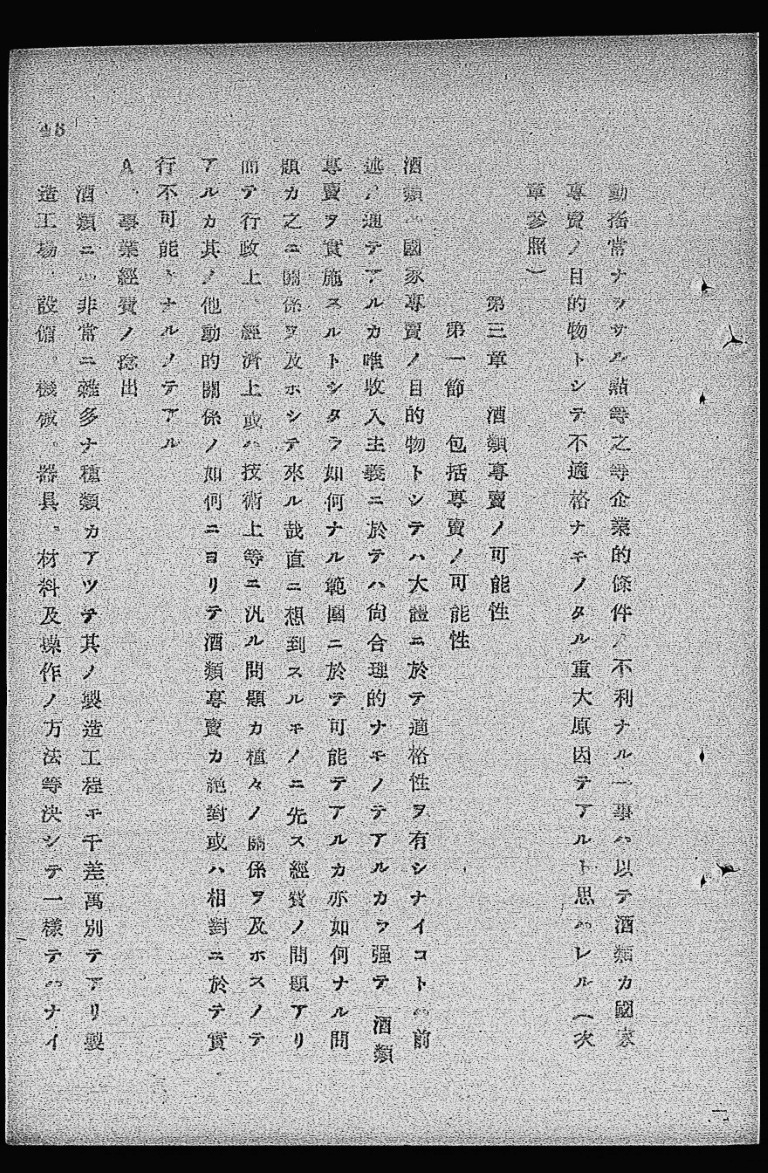 動搖常ナラサル點等之等企業的條件ノ不利ナル一事ハ以テ酒類カ國家
專賣ノ目的物トシテ不適格ナモノタル重大原因テアルト思ハレル（次
章參照）
第三章　酒類專賣ノ可能性
第一節　包括專賣ノ可能性
酒類ハ國家專賣ノ目的物トシテハ大體ニ於テ適格性ヲ有シナイコトハ前
述ノ通テアルカ唯收入主義ニ於テハ尙合理的ナモノテアルカラ强テ酒類
專賣ヲ實施スルトシタラ如何ナル範圍ニ於テ可能テアルカ亦如何ナル問
題カ之ニ關係ヲ及ホシテ來ル哉直ニ想到スルモノニ先ス經費ノ問題アリ
而テ行政上、經濟上或ハ技術上等ニ汎ル問題カ種々ノ關係ヲ及ホスノテ
アルカ其ノ他動的關係ノ如何ニヨリテ酒類專賣カ絕對或ハ相對ニ於テ實
行不可能トナルノテアル
A、事業經費ノ捻出
酒類ニハ非常ニ雜多ナ種類カアツテ其ノ製造工程モ千差萬別テアリ製
造工場、設備、機械、器具、材料及操作ノ方法等決シテ一樣テハナイ